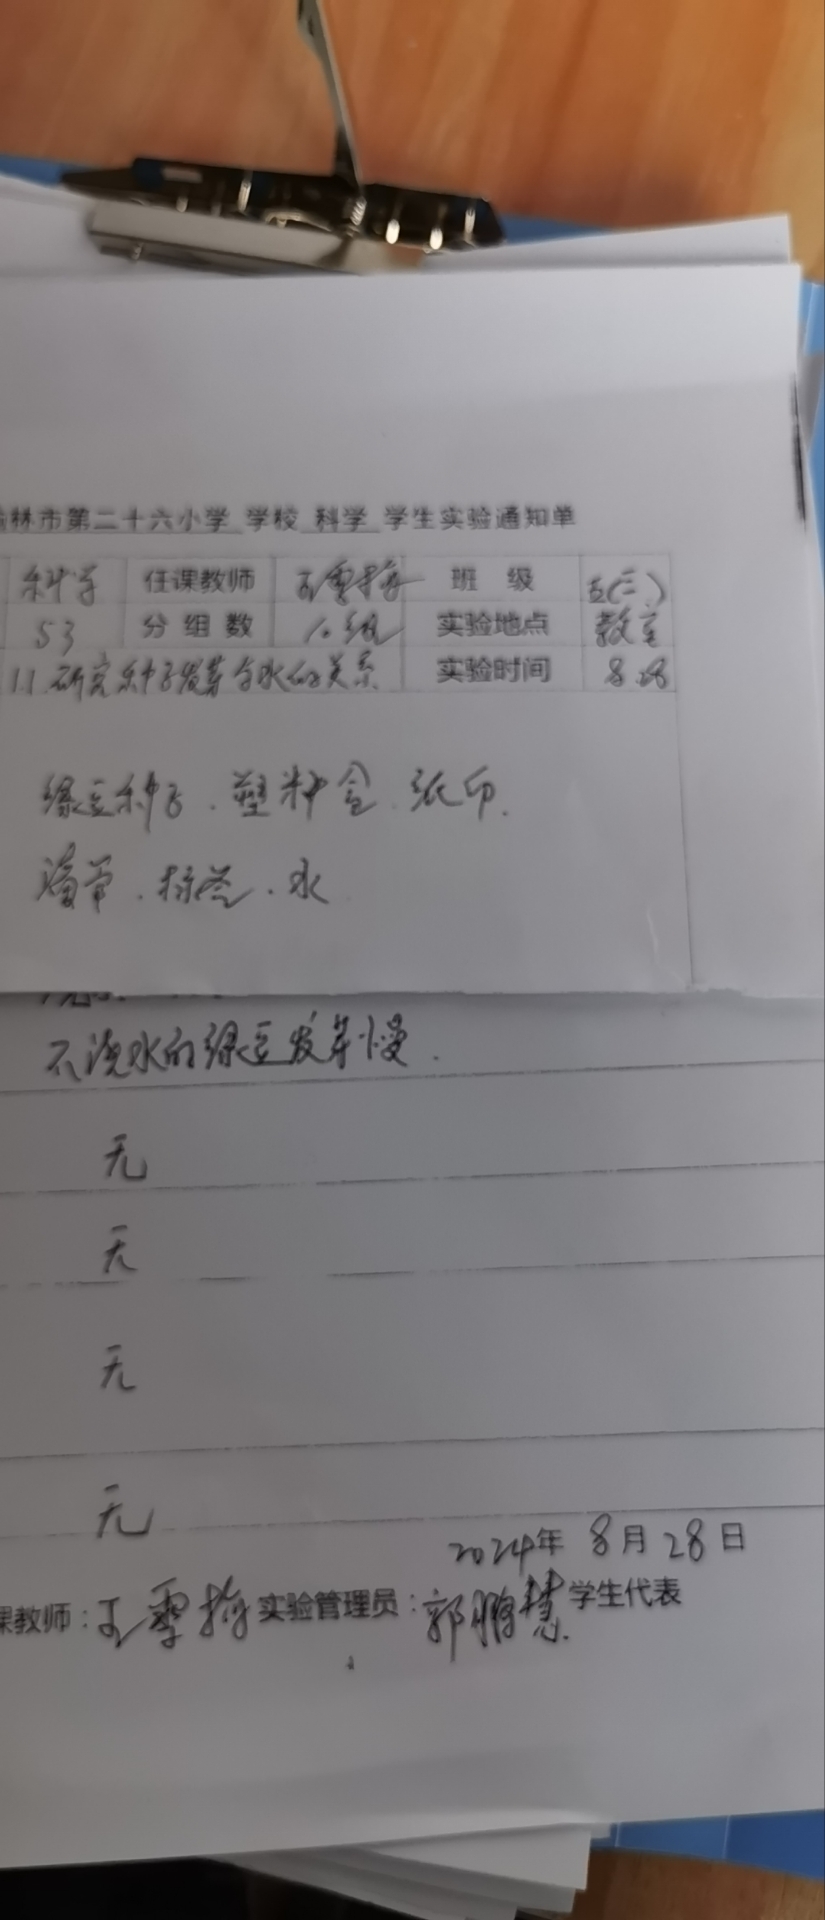 林市第二十六小学 学校 科学 学生实验通知单
科学 任课教师 王雪梅 班 级 五(三)
53 分组数 10组 实验地点 教室
11.研究种子发芽与水的关系 实验时间 8.28
绿豆种子.塑料盒.纸巾.
滴管.标签.水
不浇水的绿豆发芽慢.
无
无
无
无
2024年 8月28日
课教师:王雪梅 实验管理员:郭 慧 学生代表